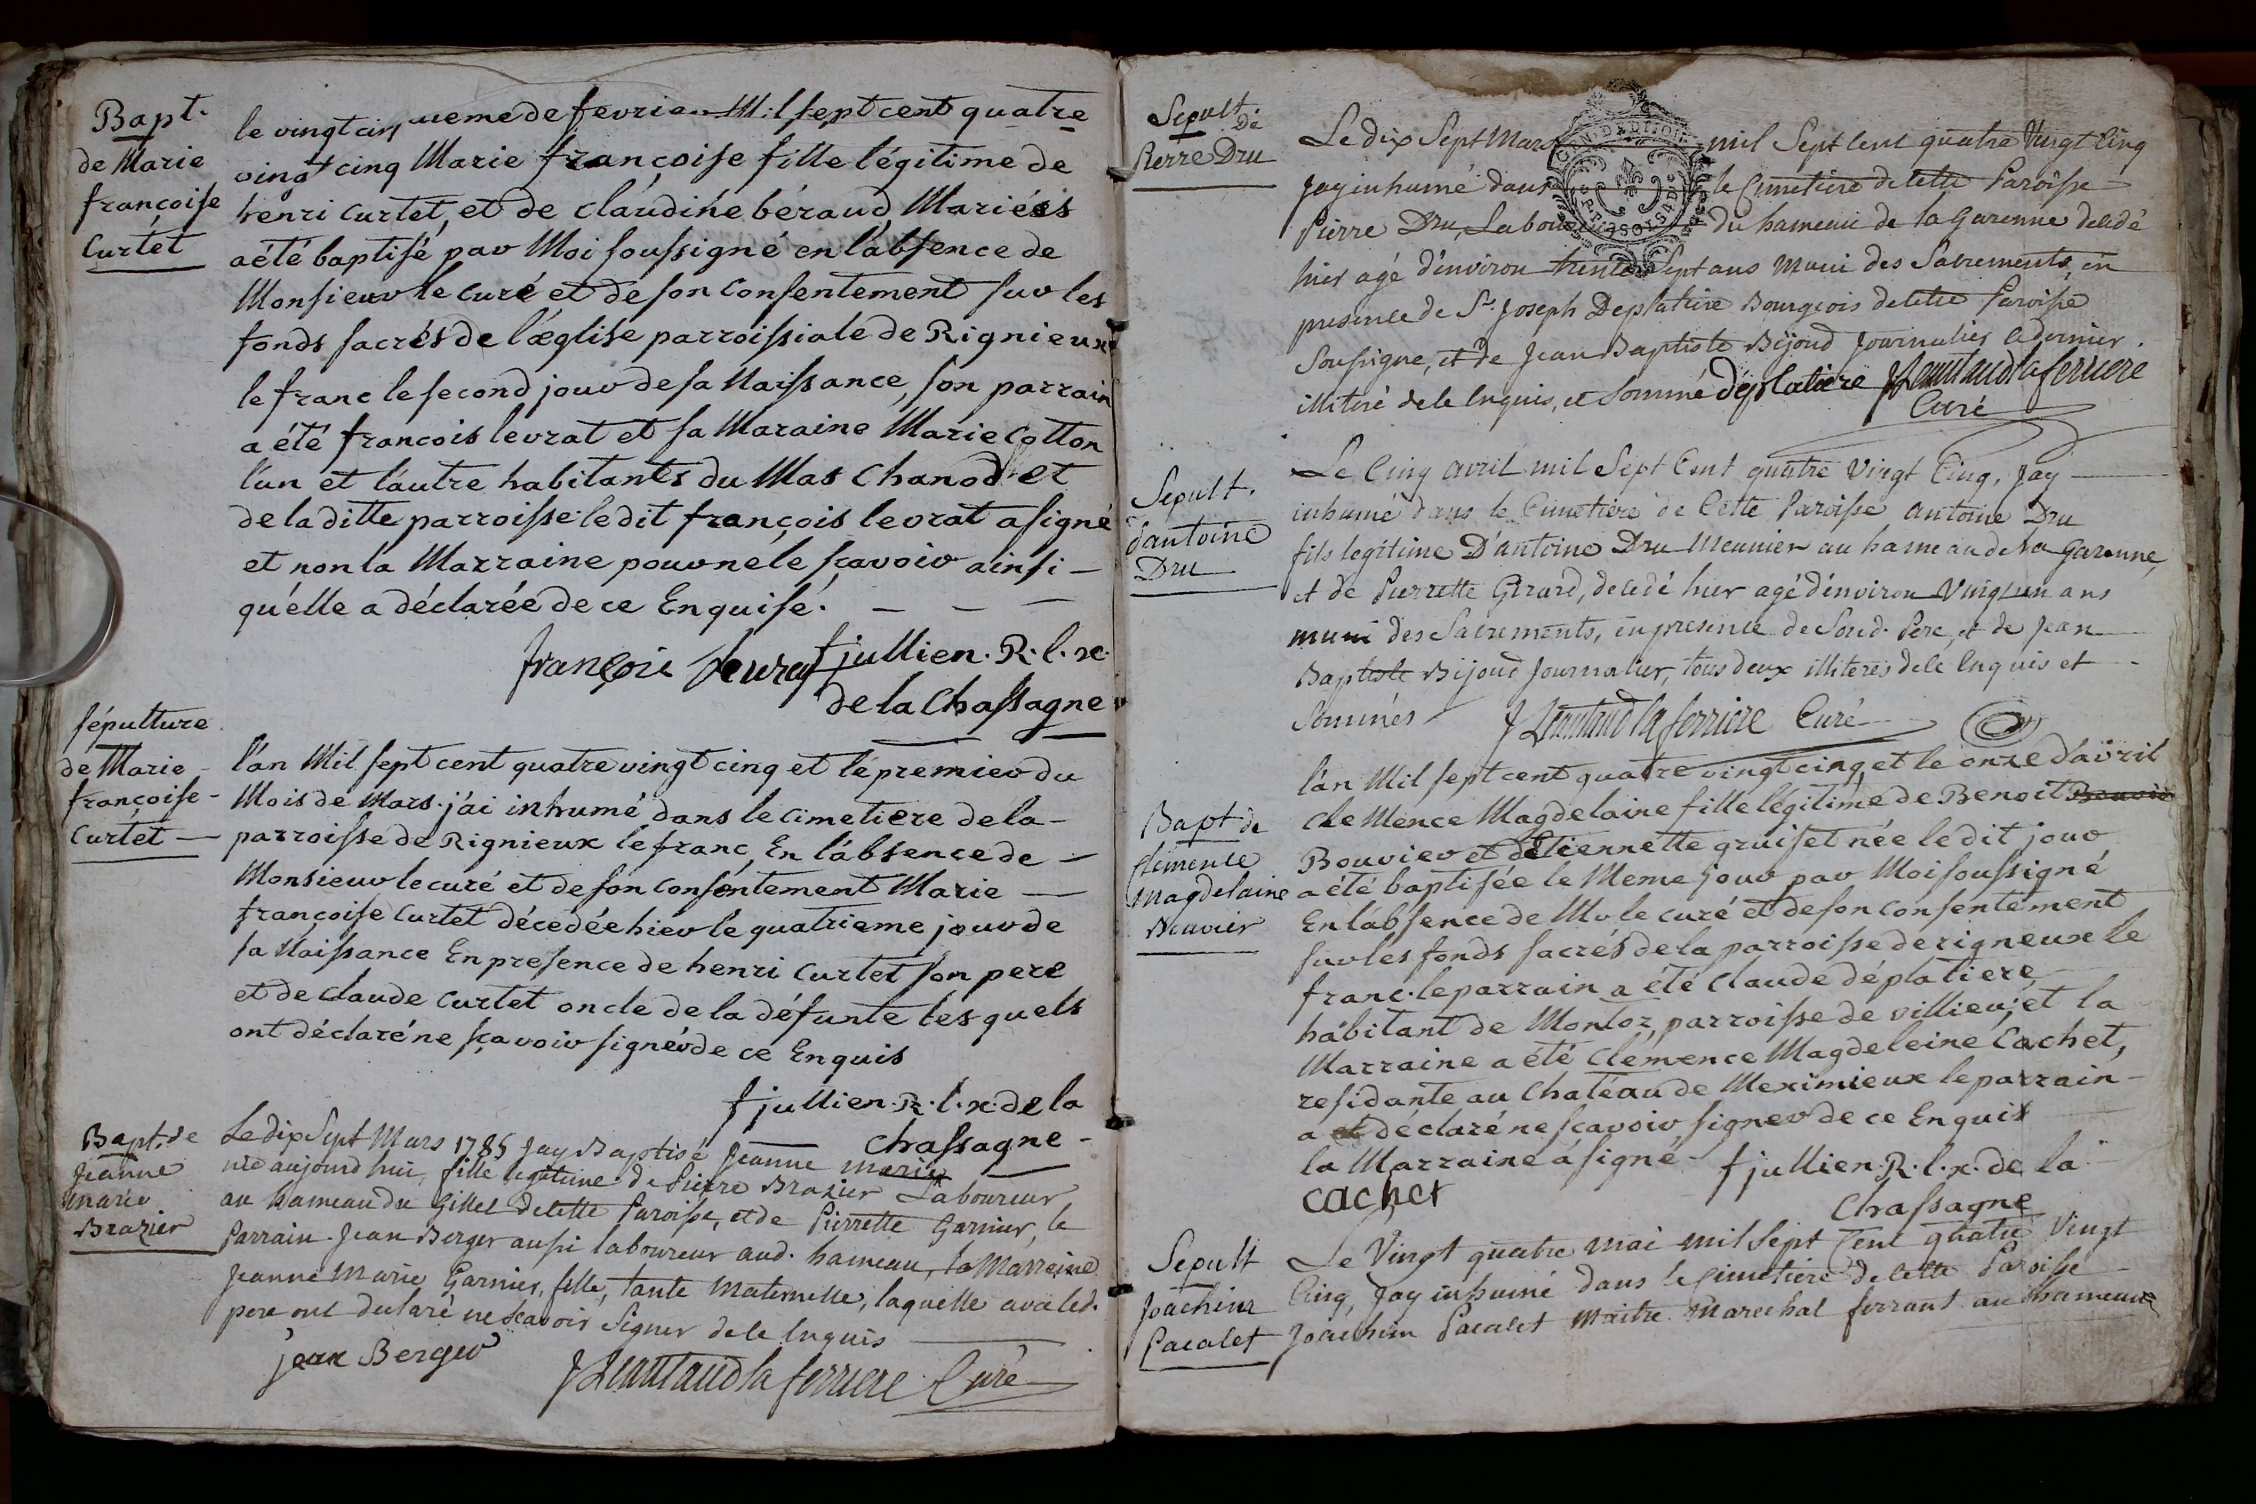 Bapt.
de Marie
françoise
Curtet
le vingt cinquieme de fevrier Mil sept cent quatre
vingt cinq Marie françoise fille légitime de
henri curtet, et de claudine béraud Mariés
a été baptisé par Moi soussigné en l'absence de
Monsieur le curé et de son consentement sur les
fonds sacrés de l'æglise parroissiale de Rignieux
le franc le second jour de sa Naissance, son parrain
a été francois levrat et sa Maraine Marie Cotton
l'un et l'autre habitants du Mas Chanod et
de la ditte parroisse le dit françois levrat a signé
et non la Marraine pour ne le sçavoir ainsi —
qu'elle a déclarée de ce Enquise. — — —
françois levrat fjullien. R. l. x.
de la Chassagne
sépulture
de Marie
françoise
Curtet
l'an Mil sept cent quatre vingt cinq et le premier du
Mois de Mars. j'ai inhumé dans le cimetiere de la —
parroisse de Rignieux le franc, En l'absence de —
Monsieur le curé et de son consentement Marie —
françoise Curtet décedée hier le quatrieme jour de
sa Naissance En presence de henri Curtet son pere
et de claude Curtet oncle de la défunte lesquels
ont déclaré ne sçavoir signer de ce Enquis
fjullien. R. l. x. de la
Chassagne -
Bapt. de
Jeanne
Marie
Brazier
Le dix Sept Mars 1785 Jay Baptisé Jeanne marie
née aujourdhui, fille legitime de Pierre Brazier Laboureur
au hameau du Gillet de cette Paroisse, et de Pierrette Garnier, le
Parrain Jean Berger aussi laboureur aud. hameau, la Marreine
Jeanne Marie Garnier, fille, tante maternelle, laquelle avec led.
pere ont declaré ne scavoir Signer de ce Enquis
jean Berger
J Leautaud la ferriere Curé
Sepult. De
Pierre Dru
Le dix Sept Mars mil Sept Cent quatre Vingt Cinq
Jay inhumé dans le Cimetiere de cette Paroisse
Pierre Dru, Laboureur du hameau de la Garenne decedé
hier agé d'environ trente Sept ans muni des Sacrements, en
presence de Sr. Joseph Deplatiere Bourgeois de cette Paroisse
Soussigné, et de Jean Baptiste Bijoud Journalier ce dernier
illiteré de ce Enquis, et Sommé déplatiere J Leautaud la ferriere
Curé
Sepult.
d'antoine
Dru
Le Cinq avril mil Sept Cent quatre Vingt Cinq, Jay —
inhumé dans le Cimetiere de Cette Paroisse antoine Dru
fils legitime D'antoine Dru Meunier au hameau de la Garenne,
et de Pierrette Girard, decedé hier agé d'environ Vingt un ans
muni des Sacrements, en presence de Soud. Pere, et de Jean
Baptiste Bijoud Journalier, tous deux illiterés de ce Enquis et
Sommés J Leautaud la ferriere Curé
Bapt de
Clemence
Magdelaine
Bouvier
l'an Mil sept cent quatre vingt cinq et le onze d'avril
cleMence Magdelaine fille légitime de Benoit Bouvier
Bouvier et d'Etiennette gruiset née le dit jour
a été baptisée le Meme jour par Moi soussigné
En l'absence de Mr le curé et de son consentement
sur les fonds sacrés de la parroisse de rigneux le
franc. le parrain a été claude déplatiere,
habitant de Montoz, parroisse de villieu; et la
Marraine a été Clémence Magdeleine Cachet,
residante au Chateau de Meximieux le parrain -
a déclaré ne sçavoir signer de ce Enquis
la Marraine a signé - fjullien. R. l. x. de la
cachet
Chassagne
Sepult
Joachim
Pacalet
Le Vingt quatre mai mil Sept Cent quatre Vingt
Cinq, Jay inhumé dans le Cimetiere de cette Paroisse
Joachim Pacalet maitre Marechal ferrant au hameau